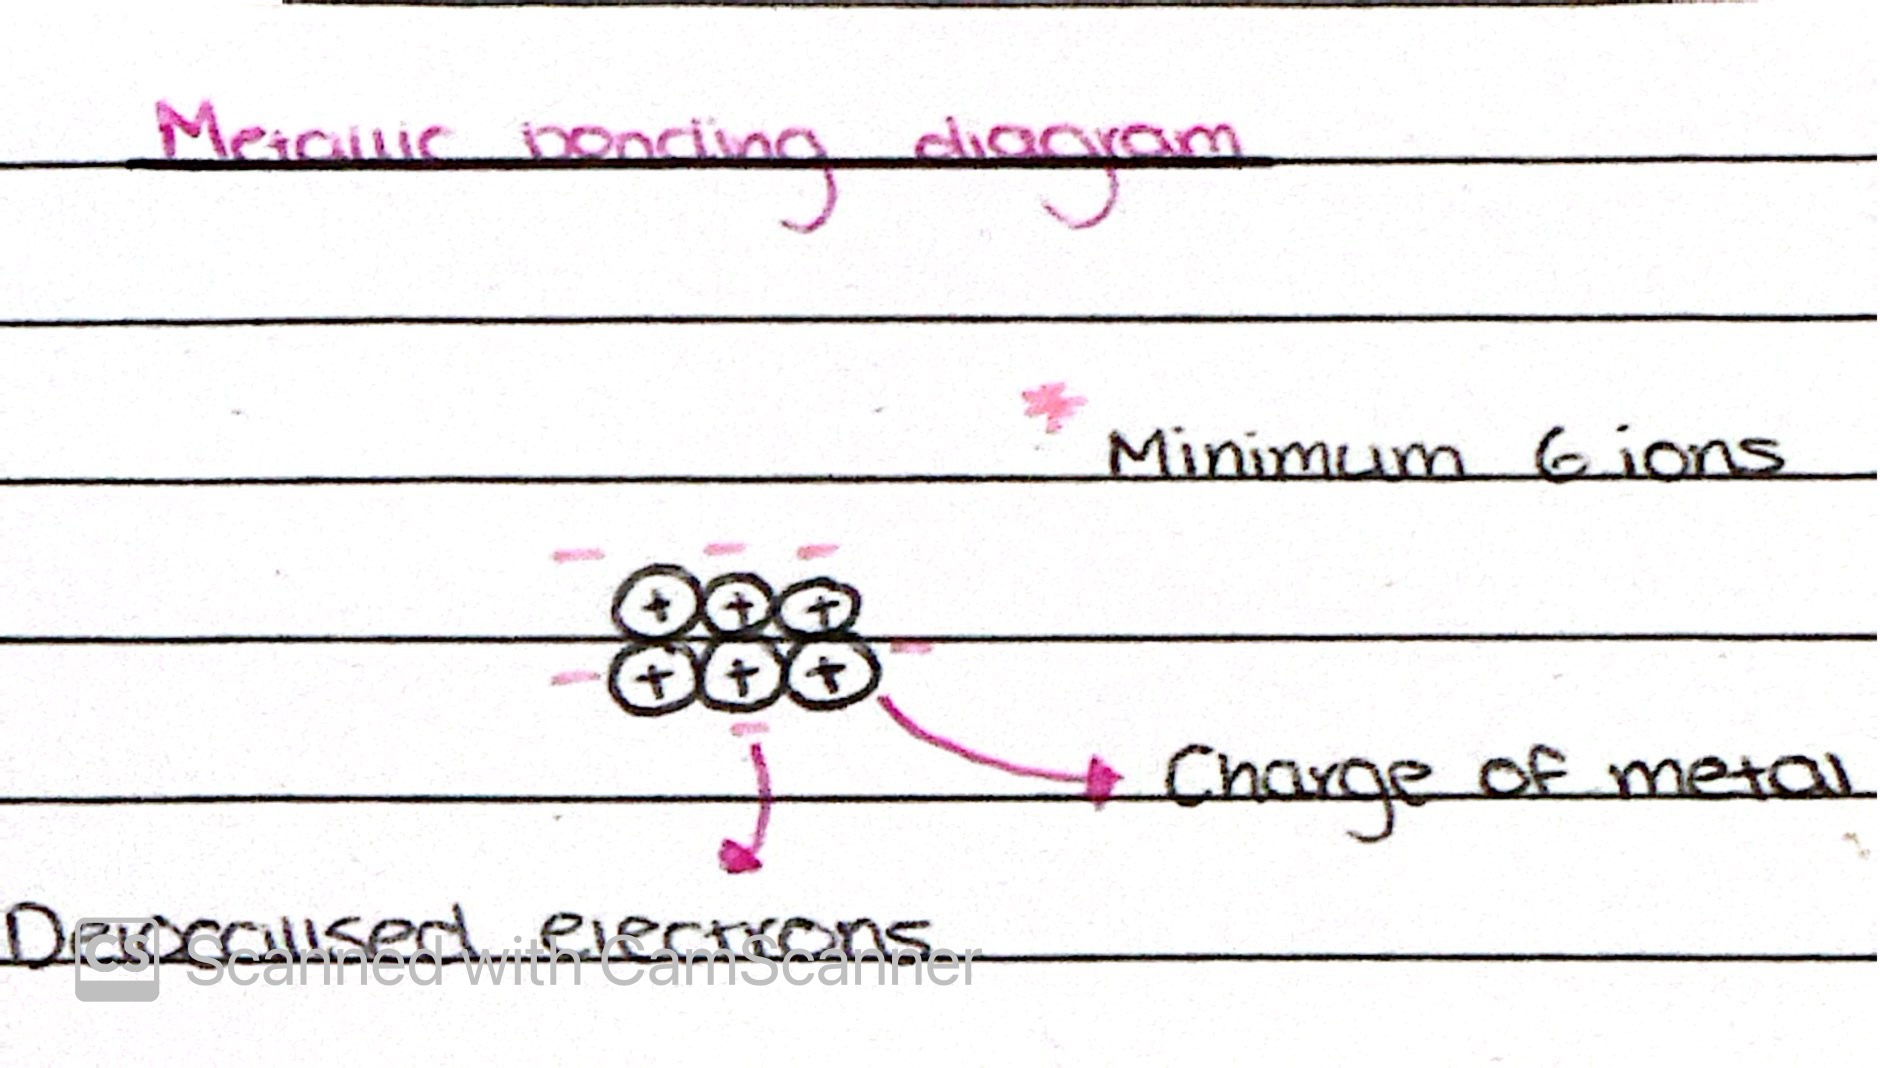 Metallic bonding diagram
* Minimum 6 ions
− − −
+ + +
−
− + + +
−
Charge of metal
Delocalised electrons
CS Scanned with CamScanner